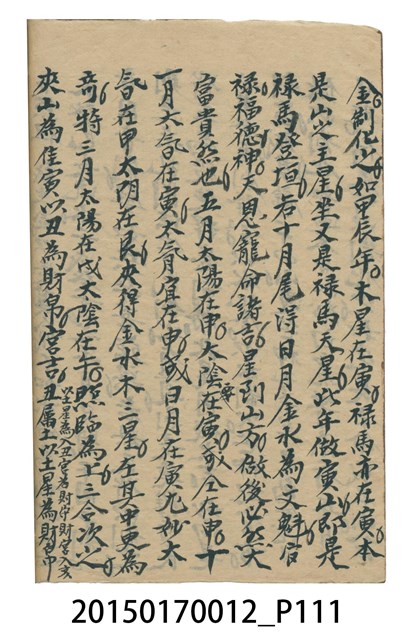 金制化之如甲辰年木星在寅祿馬亦在寅本
是山之主星坐又是祿馬天星此年做寅山即是
祿馬登垣若十月尾淂日月金水為文魁官
祿福德神天恩寵命諸吉星到山方做後必然大
富貴然也五月太陽在申太陰在寅或仝在申十
一月太陽在寅太陰宜在申或日月在寅尤妙太
陽在甲太阴在艮夾得金水木三星在其中更為
奇特三月太陽在戌太陰在午照臨為上三合次之
夾山為佳寅以丑為財帛宮吉丑屬土以土星為財帛
以土星為入丑宮為財守財宮入亥
20150170012_P111